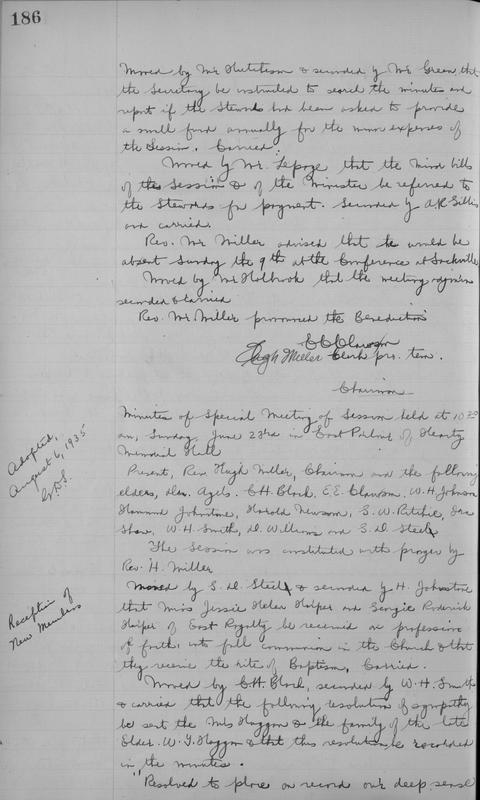 186
Moved by Mr Hutcheson & seconded by Mr Green, that
the Secretary be instructed to search the minutes and
report if the Stewards had been asked to provide
a small fund annually for the minor expenses of
the Session. Carried.
Moved by Mr. Lepage that the Minor bills
of the Session & of the Minister be referred to
the Stewards for payment. Seconded by
and carried.
Rev. Mr Miller advised that he would be
absent Sunday the 9th at the Conference at Sackville
Moved by Mr Holbrook that the meeting adjourn
seconded & carried
Rev. Mr. Miller pronounced the Benediction
Hugh Miller Clerk pro. tem.
Chairman
Adopted,
August 6, 1935
Minutes of Special Meeting of Session held at 10.30
am, Sunday, June 23rd in East Parlour of Heartz
Memorial Hall
Present, Rev Hugh Miller, Chairman and the following
elders, C.H. Black, E.E. Clawson, W.H. Johnson
Hammond Johnstone, Harold Newson, S.W. Ritchie,
Shaw, W.H. Smith, D. Williams and S.D. Steele
The Session was constituted with prayer by
Rev. H. Miller
Reception of
New Members
Moved by S.D. Steele & seconded by H. Johnstone
that Miss Jessie Helen and Roderick
of East Royalty be received on profession
of faith, into full communion in the Church & that
they receive the rite of Baptism, Carried.
Moved by C.H. Black, seconded by W.H. Smith
& carried that the following resolution of sympathy
be sent the Mrs & the family of the late
Elder. W. & that this resolution be recorded
in the minutes.
"Resolved to place on record our deep sense